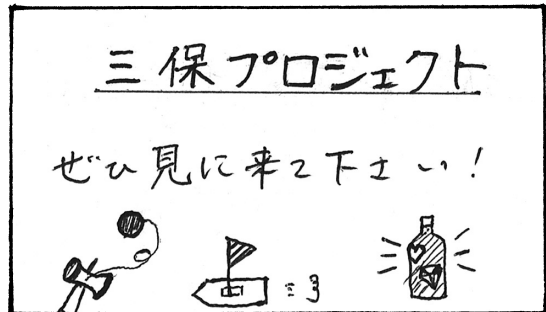 三保プロジェクト
ぜひ見に来て下さい!